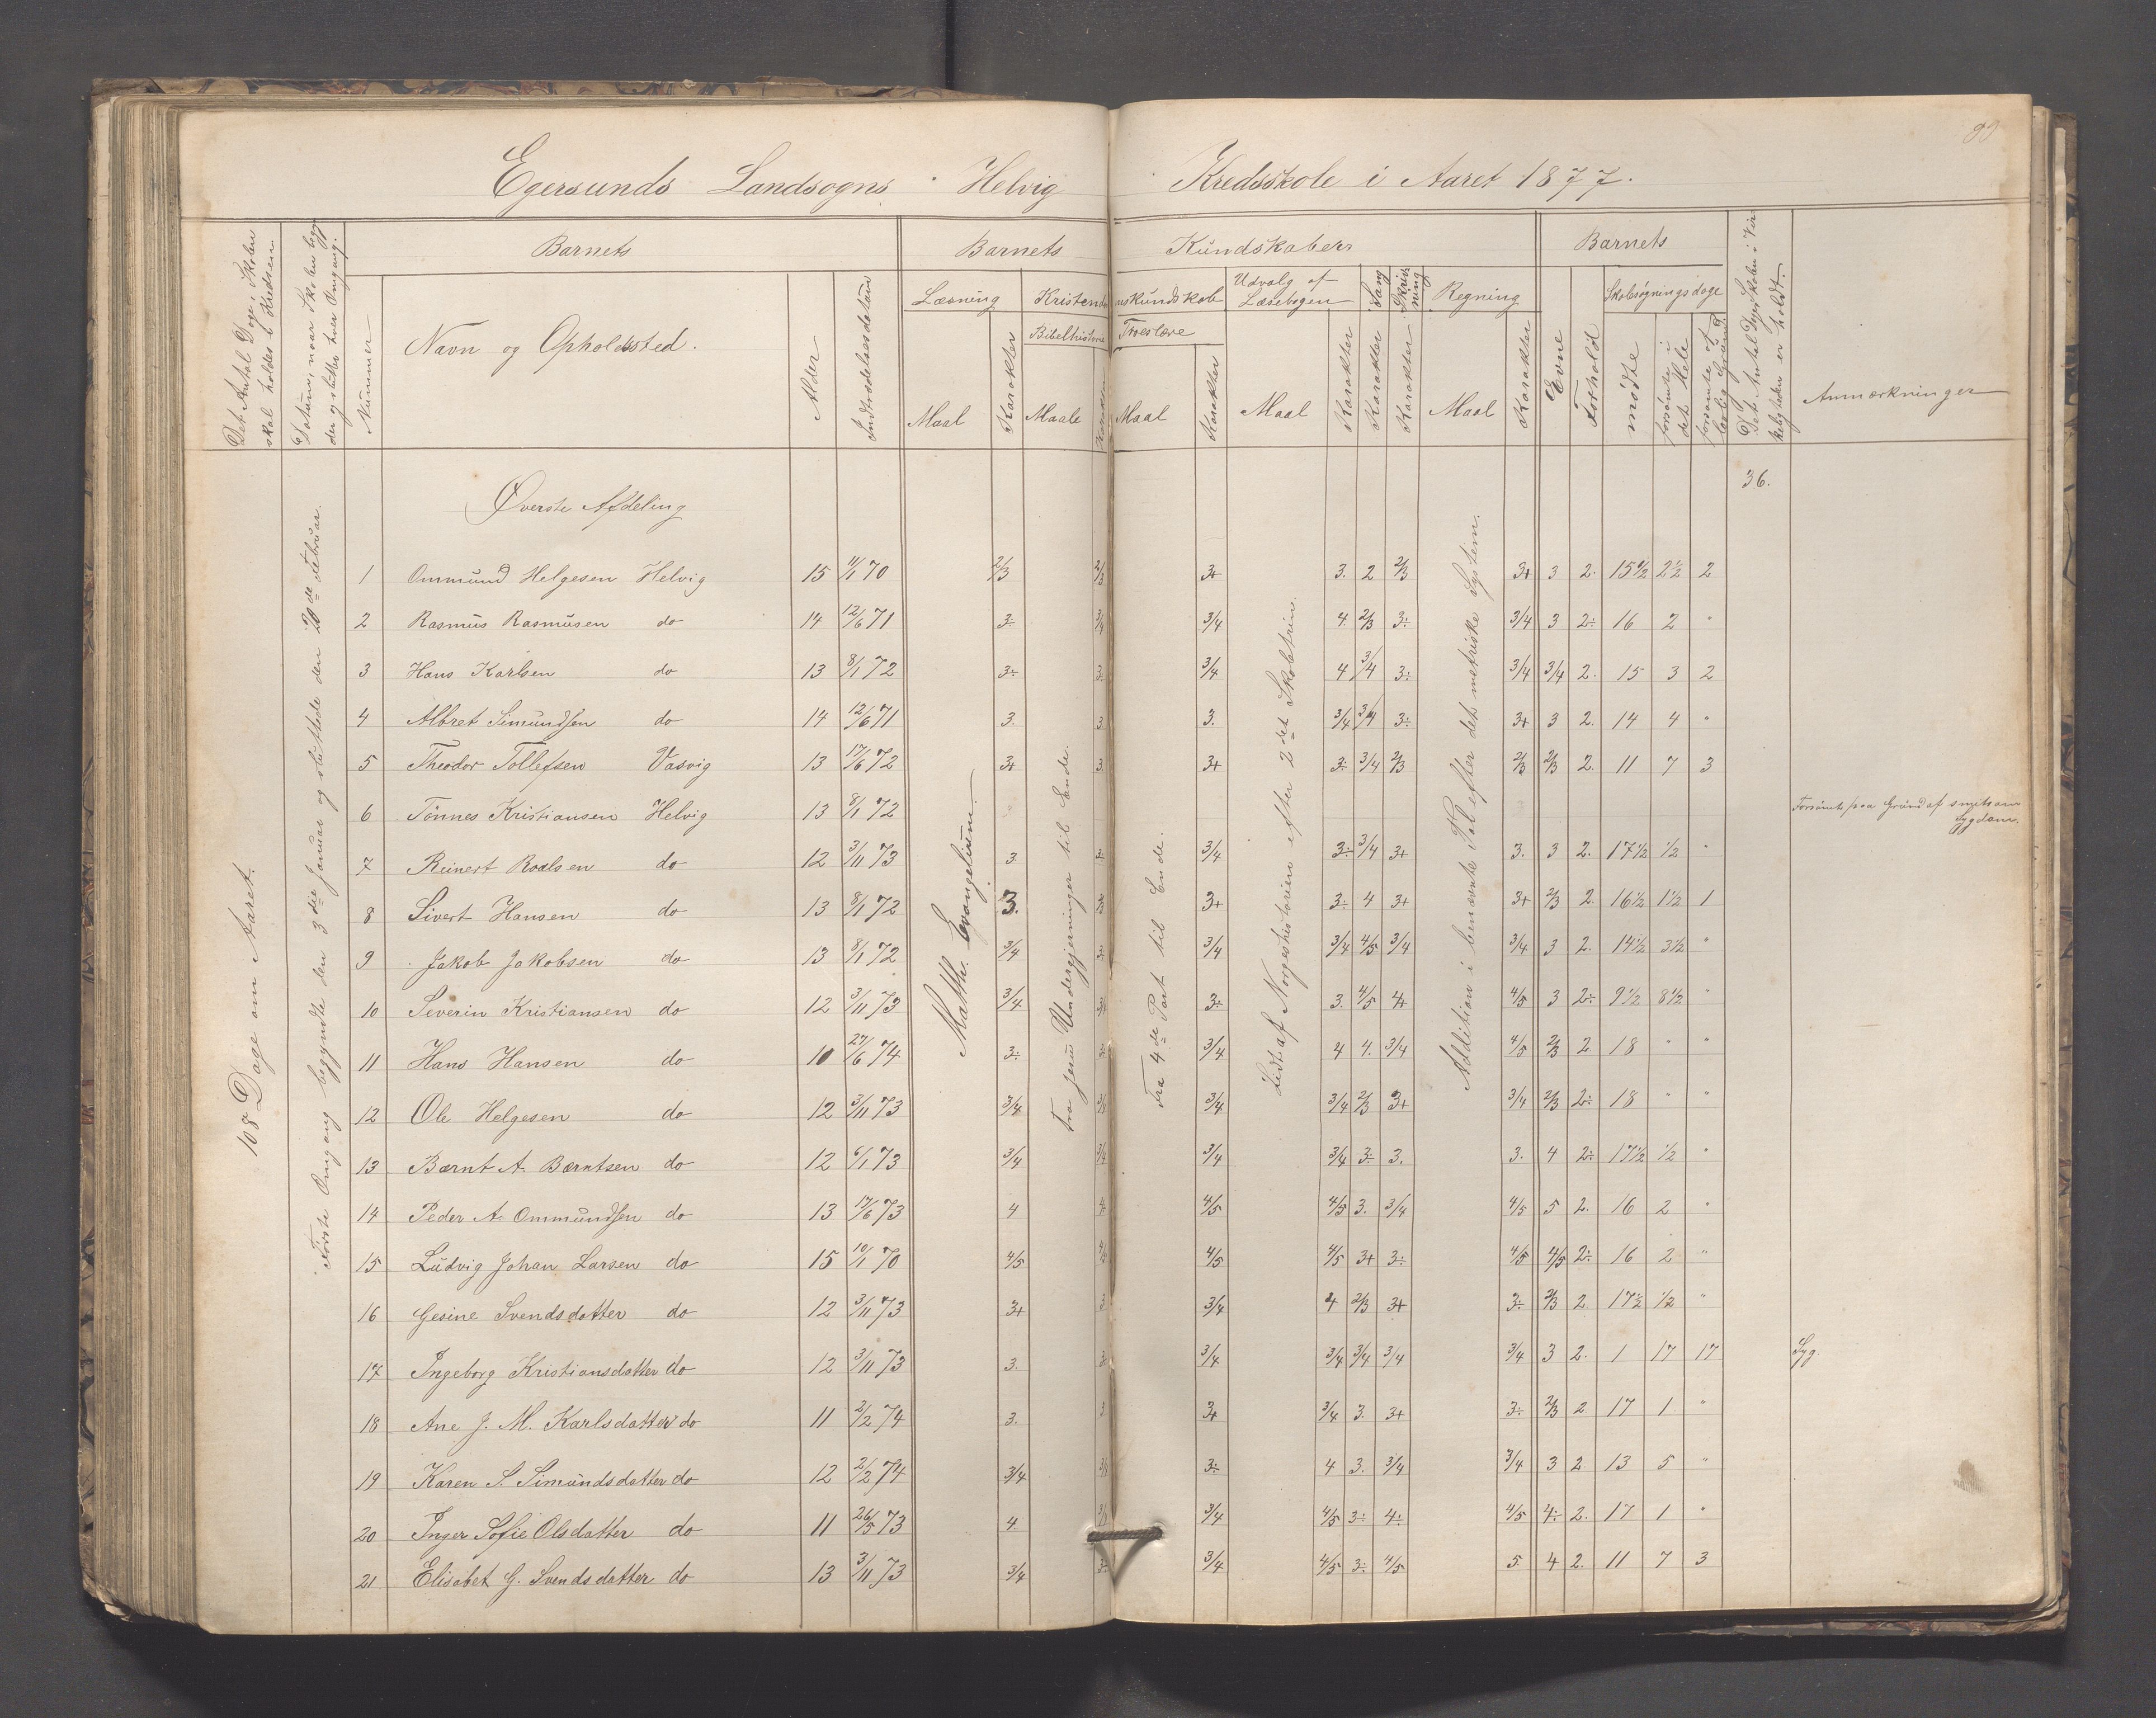 Egersunds Landsogns Helvig Kredsskole i Aaret 1877.
Det Antal Dage, Skolen skal holdes i Kredsen
Datum, naar Skolen begynder og slutter hver Omgang.
Barnets
Nummer
Navn og Opholdssted.
Alder
Indtrædelsesdatum
Barnets Kundskaber
Læsning
Maal
Karakter
Kristendomskundskab
Bibelhistorie
Maal
Karakter
Troeslære
Maal
Karakter
Udvalg af Læsebogen
Maal
Karakter
Sang
Karakter
Skrivning
Karakter
Regning
Maal
Karakter
Barnets
Evne
Forhold
Skolesøgningsdage
mødte
forsømte i det Hele
forsømte af lovlig Grund
Det Antal Dage, Skolen i Virkeligheden er holdt.
Anmærkninger
108 Dage om Aaret.
Første Omgang begyndte den 3die Januar og sluttede den 20de Februar.
Matth. Evangelium.
Fra Jesu Undergjerninger til Ende.
Fra 4de Part til Ende.
Lidt af Norgeshistorien efter 2det Skoletrin.
Addition i benævnte Tal efter det metriske System.
36.
Øverste Afdeling
1 Ommund Helgesen Helvig 15 11/1 70 2/3 2/3 3+ 3. 2 2/3 3+ 3 2. 15 1/2 2 1/2 2
2 Rasmus Rasmusen do 14 12/6 71 3÷ 3/4 3/4 4. 2/3 3÷ 3/4 3 2÷ 16 2 "
3 Hans Karlsen do 13 8/1 72 3÷ 3÷ 3/4 4 3/4 3÷ 3/4 3/4 2. 15 3 2
4 Albret Simundsen do 14 12/6 71 3. 3 3. 3/4 3/4 3÷ 3+ 3 2. 14 4 "
5 Theodor Tollefsen Vasvig 13 17/6 72 3+ 3. 3+ 3÷ 3/4 2/3 2/3 2/3 2. 11 7 3
6 Tönnes Kristiansen Helvig 13 8/1 72 Forsømte paa Grund af smitsom Sygdom.
7 Reinert Roalsen do 12 3/11 73 3 3÷ 3/4 3÷ 3/4 3+ 3. 3 2. 17 1/2 1/2 "
8 Sivert Hansen do 13 8/1 72 3. 2/3 3+ 3÷ 4 3+ 3+ 2/3 2. 16 1/2 1 1/2 1
9 Jakob Jakobsen do 13 8/1 72 3/4 3÷ 3/4 3/4 4/5 3/4 3/4 3 2. 14 1/2 3 1/2 "
10 Severin Kristiansen do 12 3/11 73 3/4 3/4 3÷ 3. 4/5 4+ 4/5 3 2÷ 9 1/2 8 1/2 "
11 Hans Hansen do 10 27/6 74 3÷ 3÷ 3/4 4 4. 3/4 4/5 2/3 2 18 " "
12 Ole Helgesen do 12 3/11 73 3/4 3/4 3/4 3/4 2/3 3+ 3/4 2/3 2÷ 18 " "
13 Bærnt A. Bærntsen do 12 6/1 73 3/4 3/4 3/4 3/4 3÷ 3. 3. 4 2÷ 17 1/2 1/2 "
14 Peder A. Ommundsen do 13 17/6 73 4 4 4/5 4/5 3. 3/4 4/5 5 2. 16 2 "
15 Ludvig Johan Larsen do 15 10/1 70 4/5 4/5 4/5 4/5 3+ 3÷ 4/5 4/5 2÷ 16 2 "
16 Gesine Svendsdatter do 12 3/11 73 3+ 3 3/4 4 2/3 3+ 3÷ 2/3 2 17 1/2 1/2 "
17 Ingeborg Kristiansdatter do 12 3/11 73 3. 3÷ 3/4 3/4 3/4 3/4 3/4 3 2. 1 17 17 Syg.
18 Ane J. M. Karlsdatter do 11 2/2 74 3. 3 3+ 3/4 3. 3+ 3÷ 2/3 2 17 1 "
19 Karen S. Simundsdatter do 12 2/2 74 3/4 3/4 3÷ 4 3. 3/4 3/4 3 2 13 5 "
20 Inger Sofie Olsdatter do 11 26/5 73 4. 3/4 3/4 4/5 3÷ 4÷ 4/5 4÷ 2. 17 1 "
21 Elisabet G. Svendsdatter do 13 3/11 73 3/4 3÷ 3/4 4/5 3÷ 4/5 5. 4 2. 11 7 3